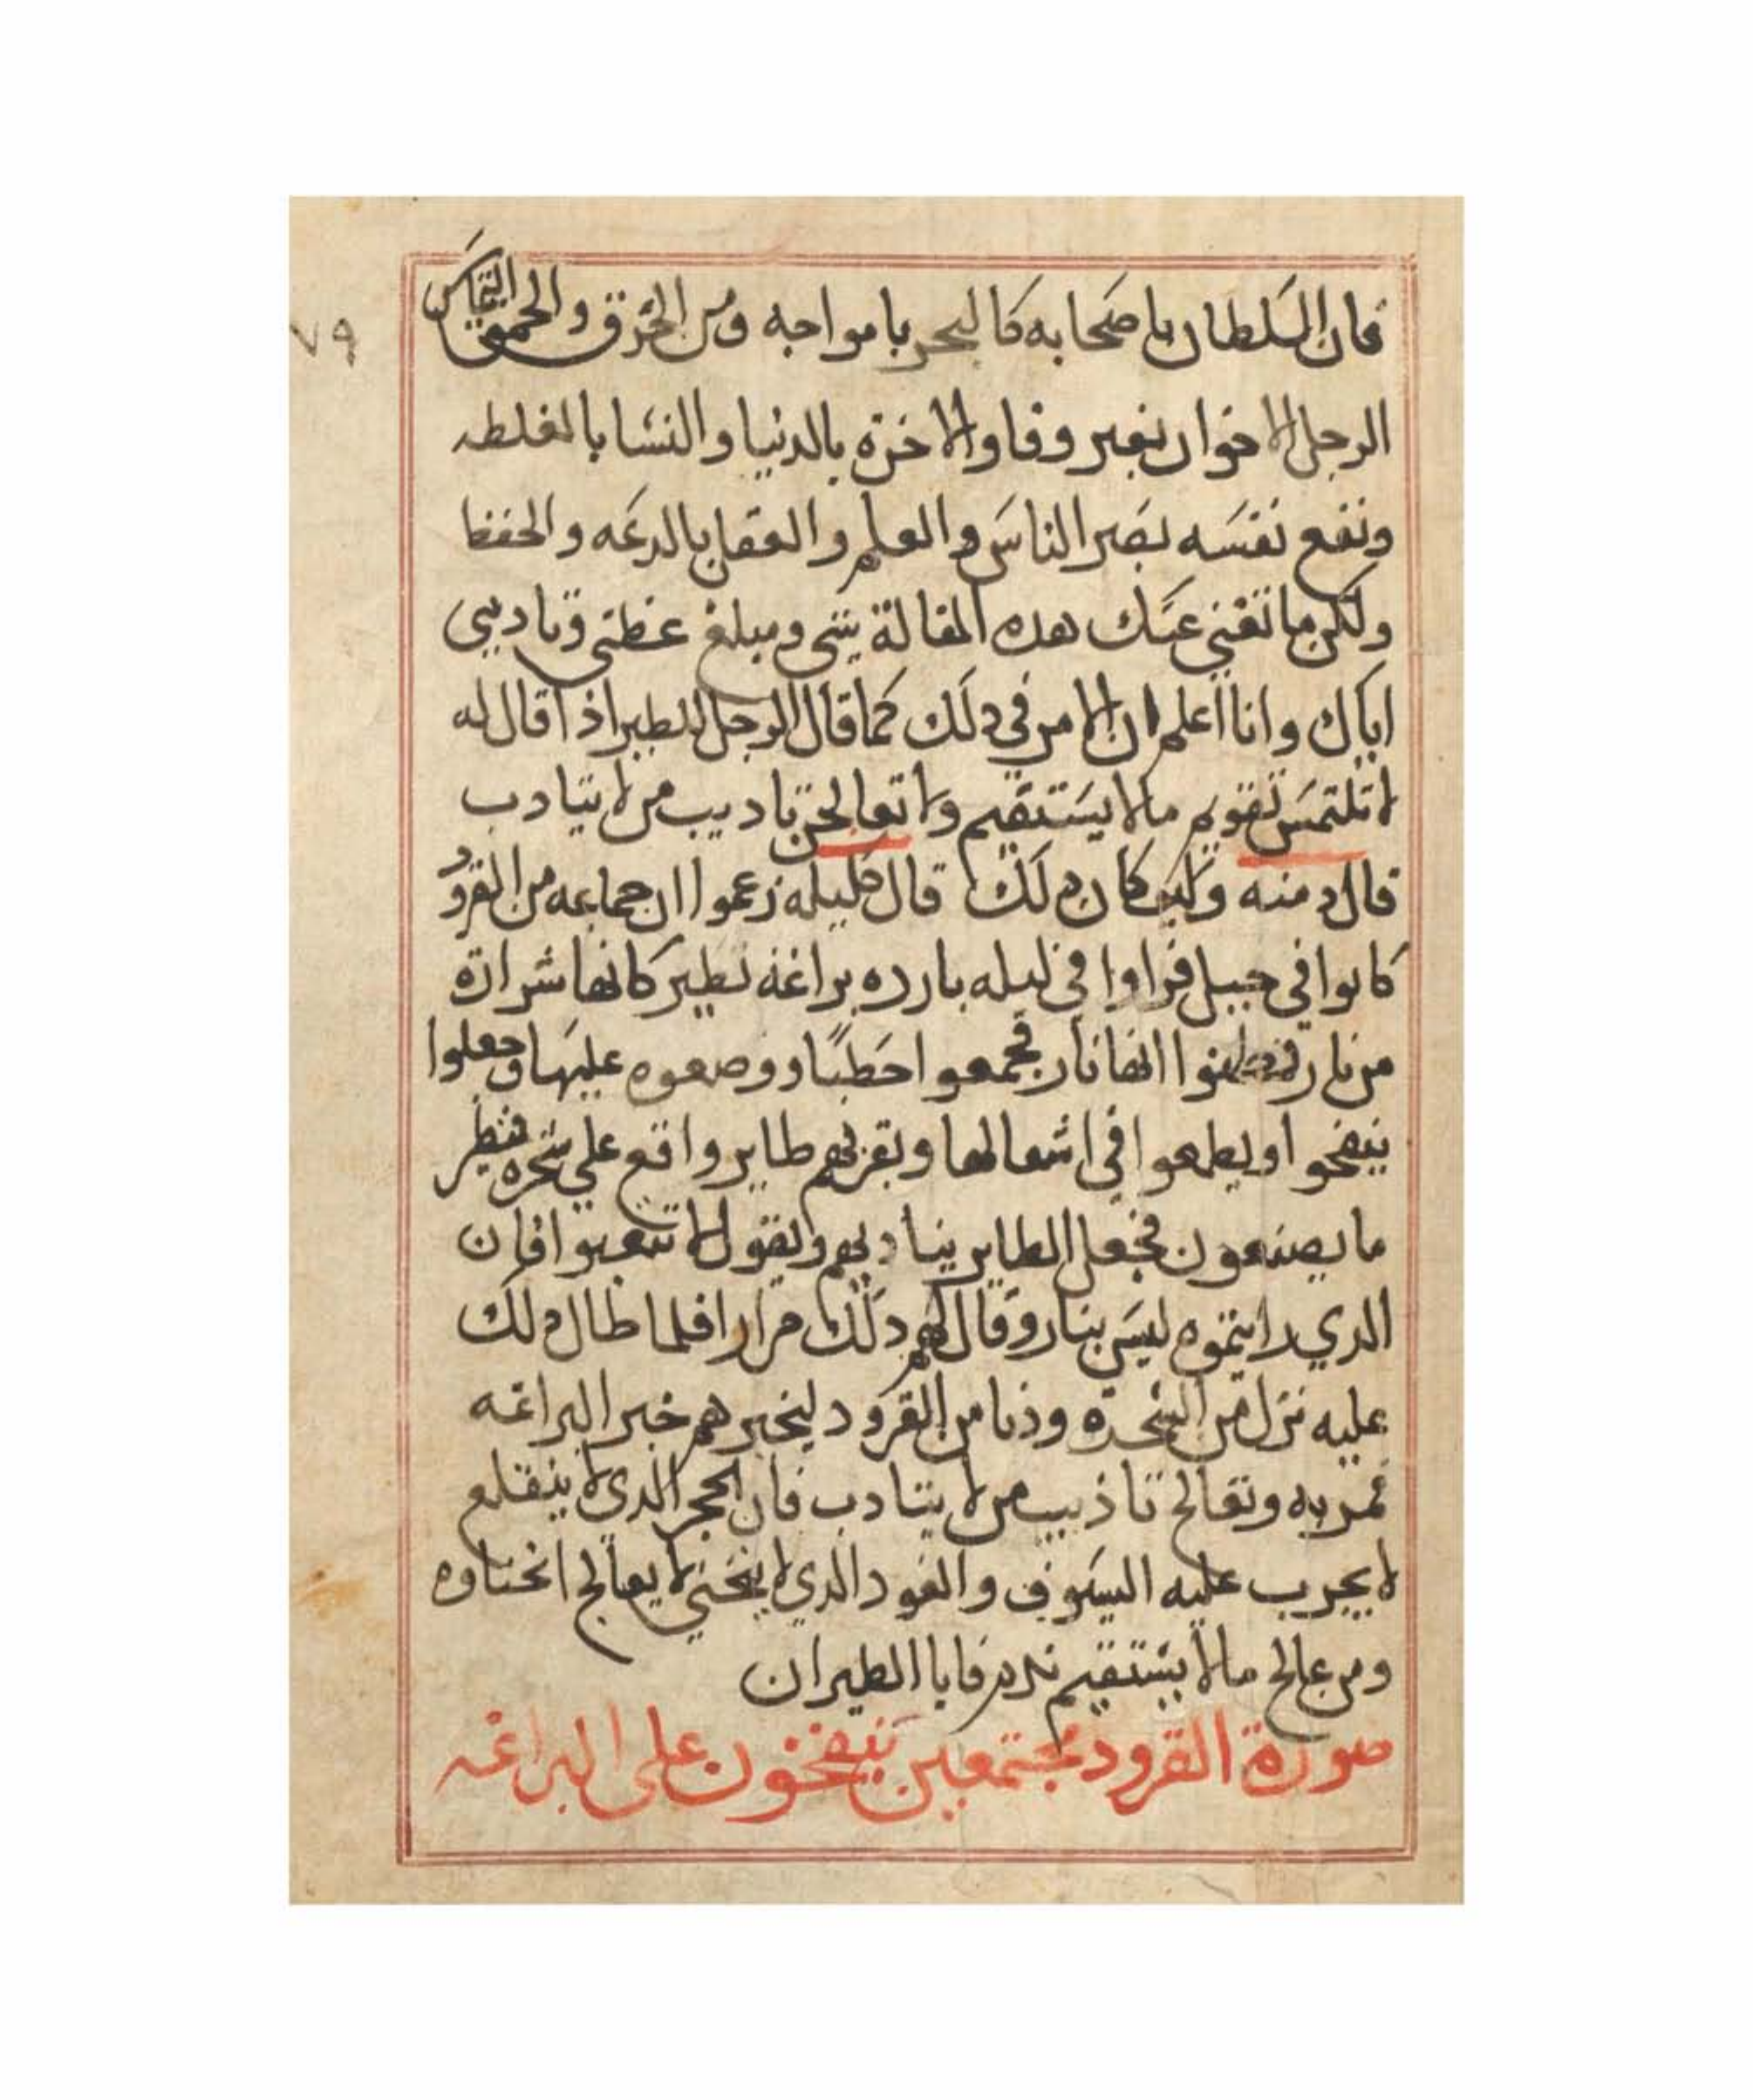 فان السلطان باصحابه كالبحر بامواجه ومن الخرق والحمق التماس
٧٩
الرجل الاخوان بغير وفا والاخرة بالدنيا والنسا بالغلطه
ونفع نفسه بضر الناس والعلم والعقل بالدعه والحفظ
ولكن ما تغني عنك هده المقالة شي ومبلغ عظتي وتاديبي
اياك وانا اعلم ان الامر في دلك كما قال الرجل للطير اذا قال له
لا تلتمس تقويم مالا يستقيم ولا تعالجن تاديب من لا يتادب
قال دمنه وكيف كان دلك قال كليله زعموا ان جماعه من القرود
كانوا في جبل فراوا في ليله بارده براغة تطير كانها شرارة
من نار فظنوا انها نار فجمعوا حطبًا ووضعوه عليها وجعلوا
ينفخوا ويطمعوا في اشعالها وبقربهم طاير واقع على شجره ينظر
ما يصنعون فجعل الطاير يناديهم ويقول لا تتعبوا فان
الدي رايتموه ليس بنار وقال لهم دلك مرارا فلما طال دلك
عليه نزل من الشجرة ودنا من القرود ليخبرهم خبر البراغه
فمر به وتعالج تاذيب من لا يتادب فان الحجر الدي لا ينقلع
لا يجرب عليه السيوف والعود الدي لا ينحني لا يعالج انحناوه
ومن عالج مالا يستقيم ندم فابا الطيران
صورة القرود مجتمعين ينفخون على البراغه